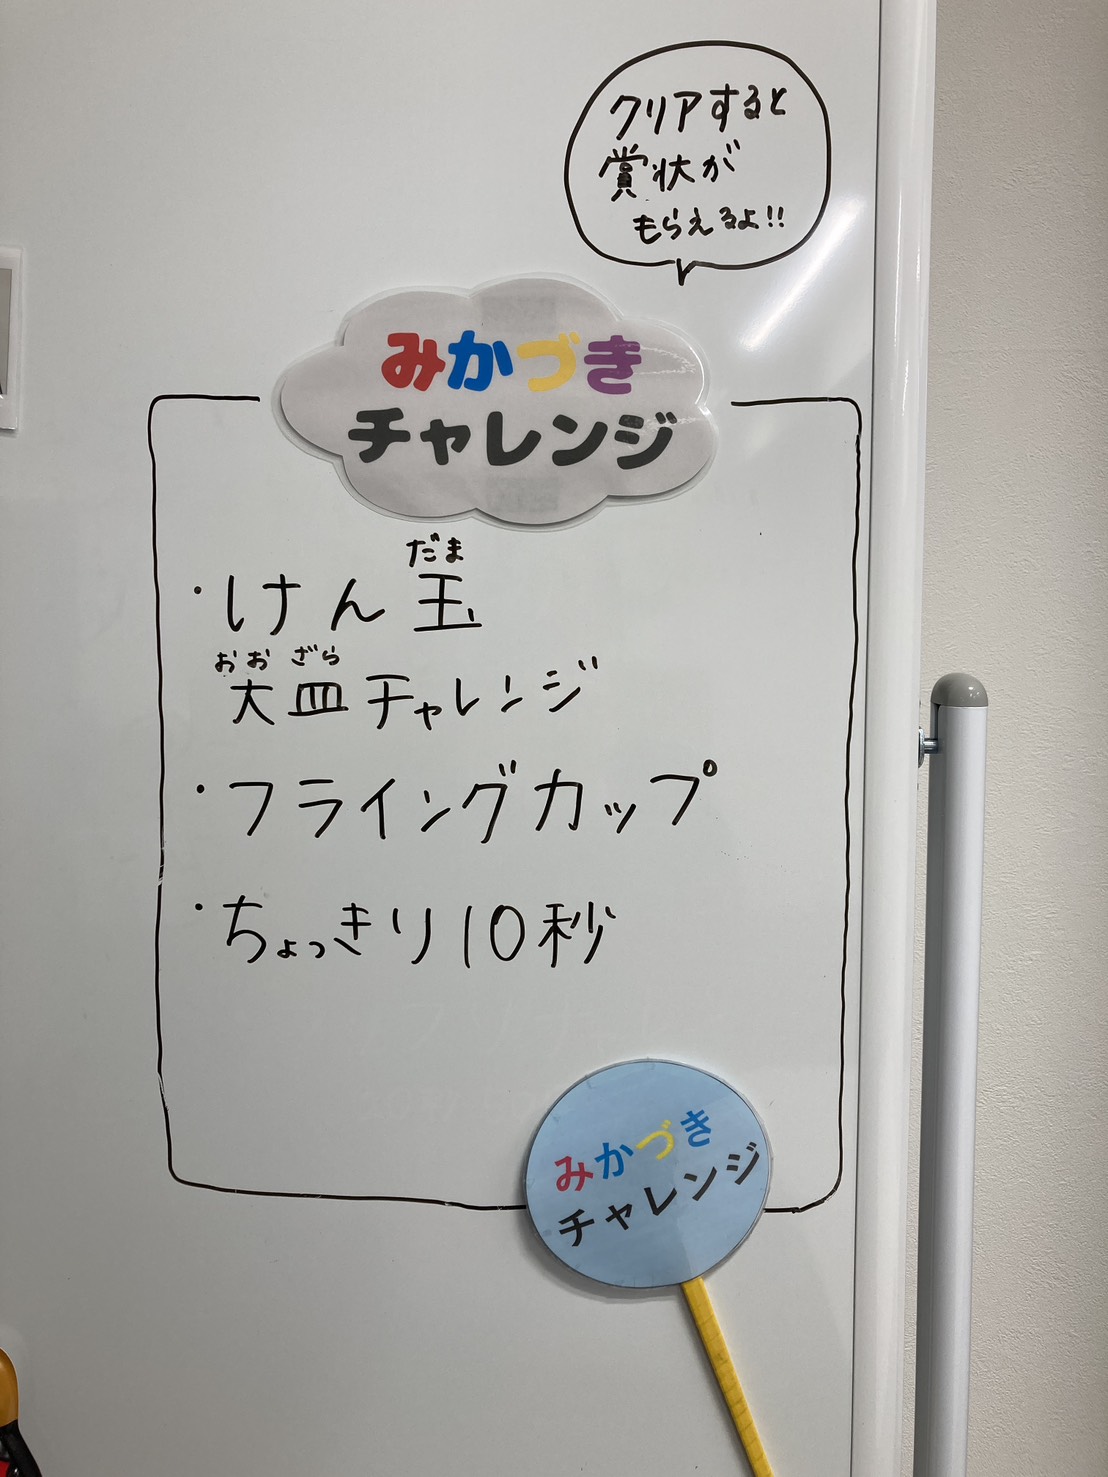 クリアすると
賞状が
もらえるよ!!
みかづき
チャレンジ
だま
・けん玉
おおざら
大皿チャレンジ
・フライングカップ
・ちょっきり10秒
みかづき
チャレンジ